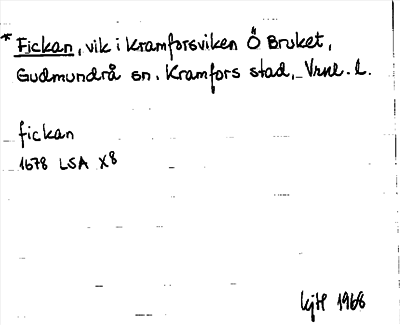 * Fickan, vik i Kramforsviken Ö Bruket,
Gudmundrå sn. Kramfors stad, Vrnl. l.
fickan
1678 LSA X8
KjH 1968